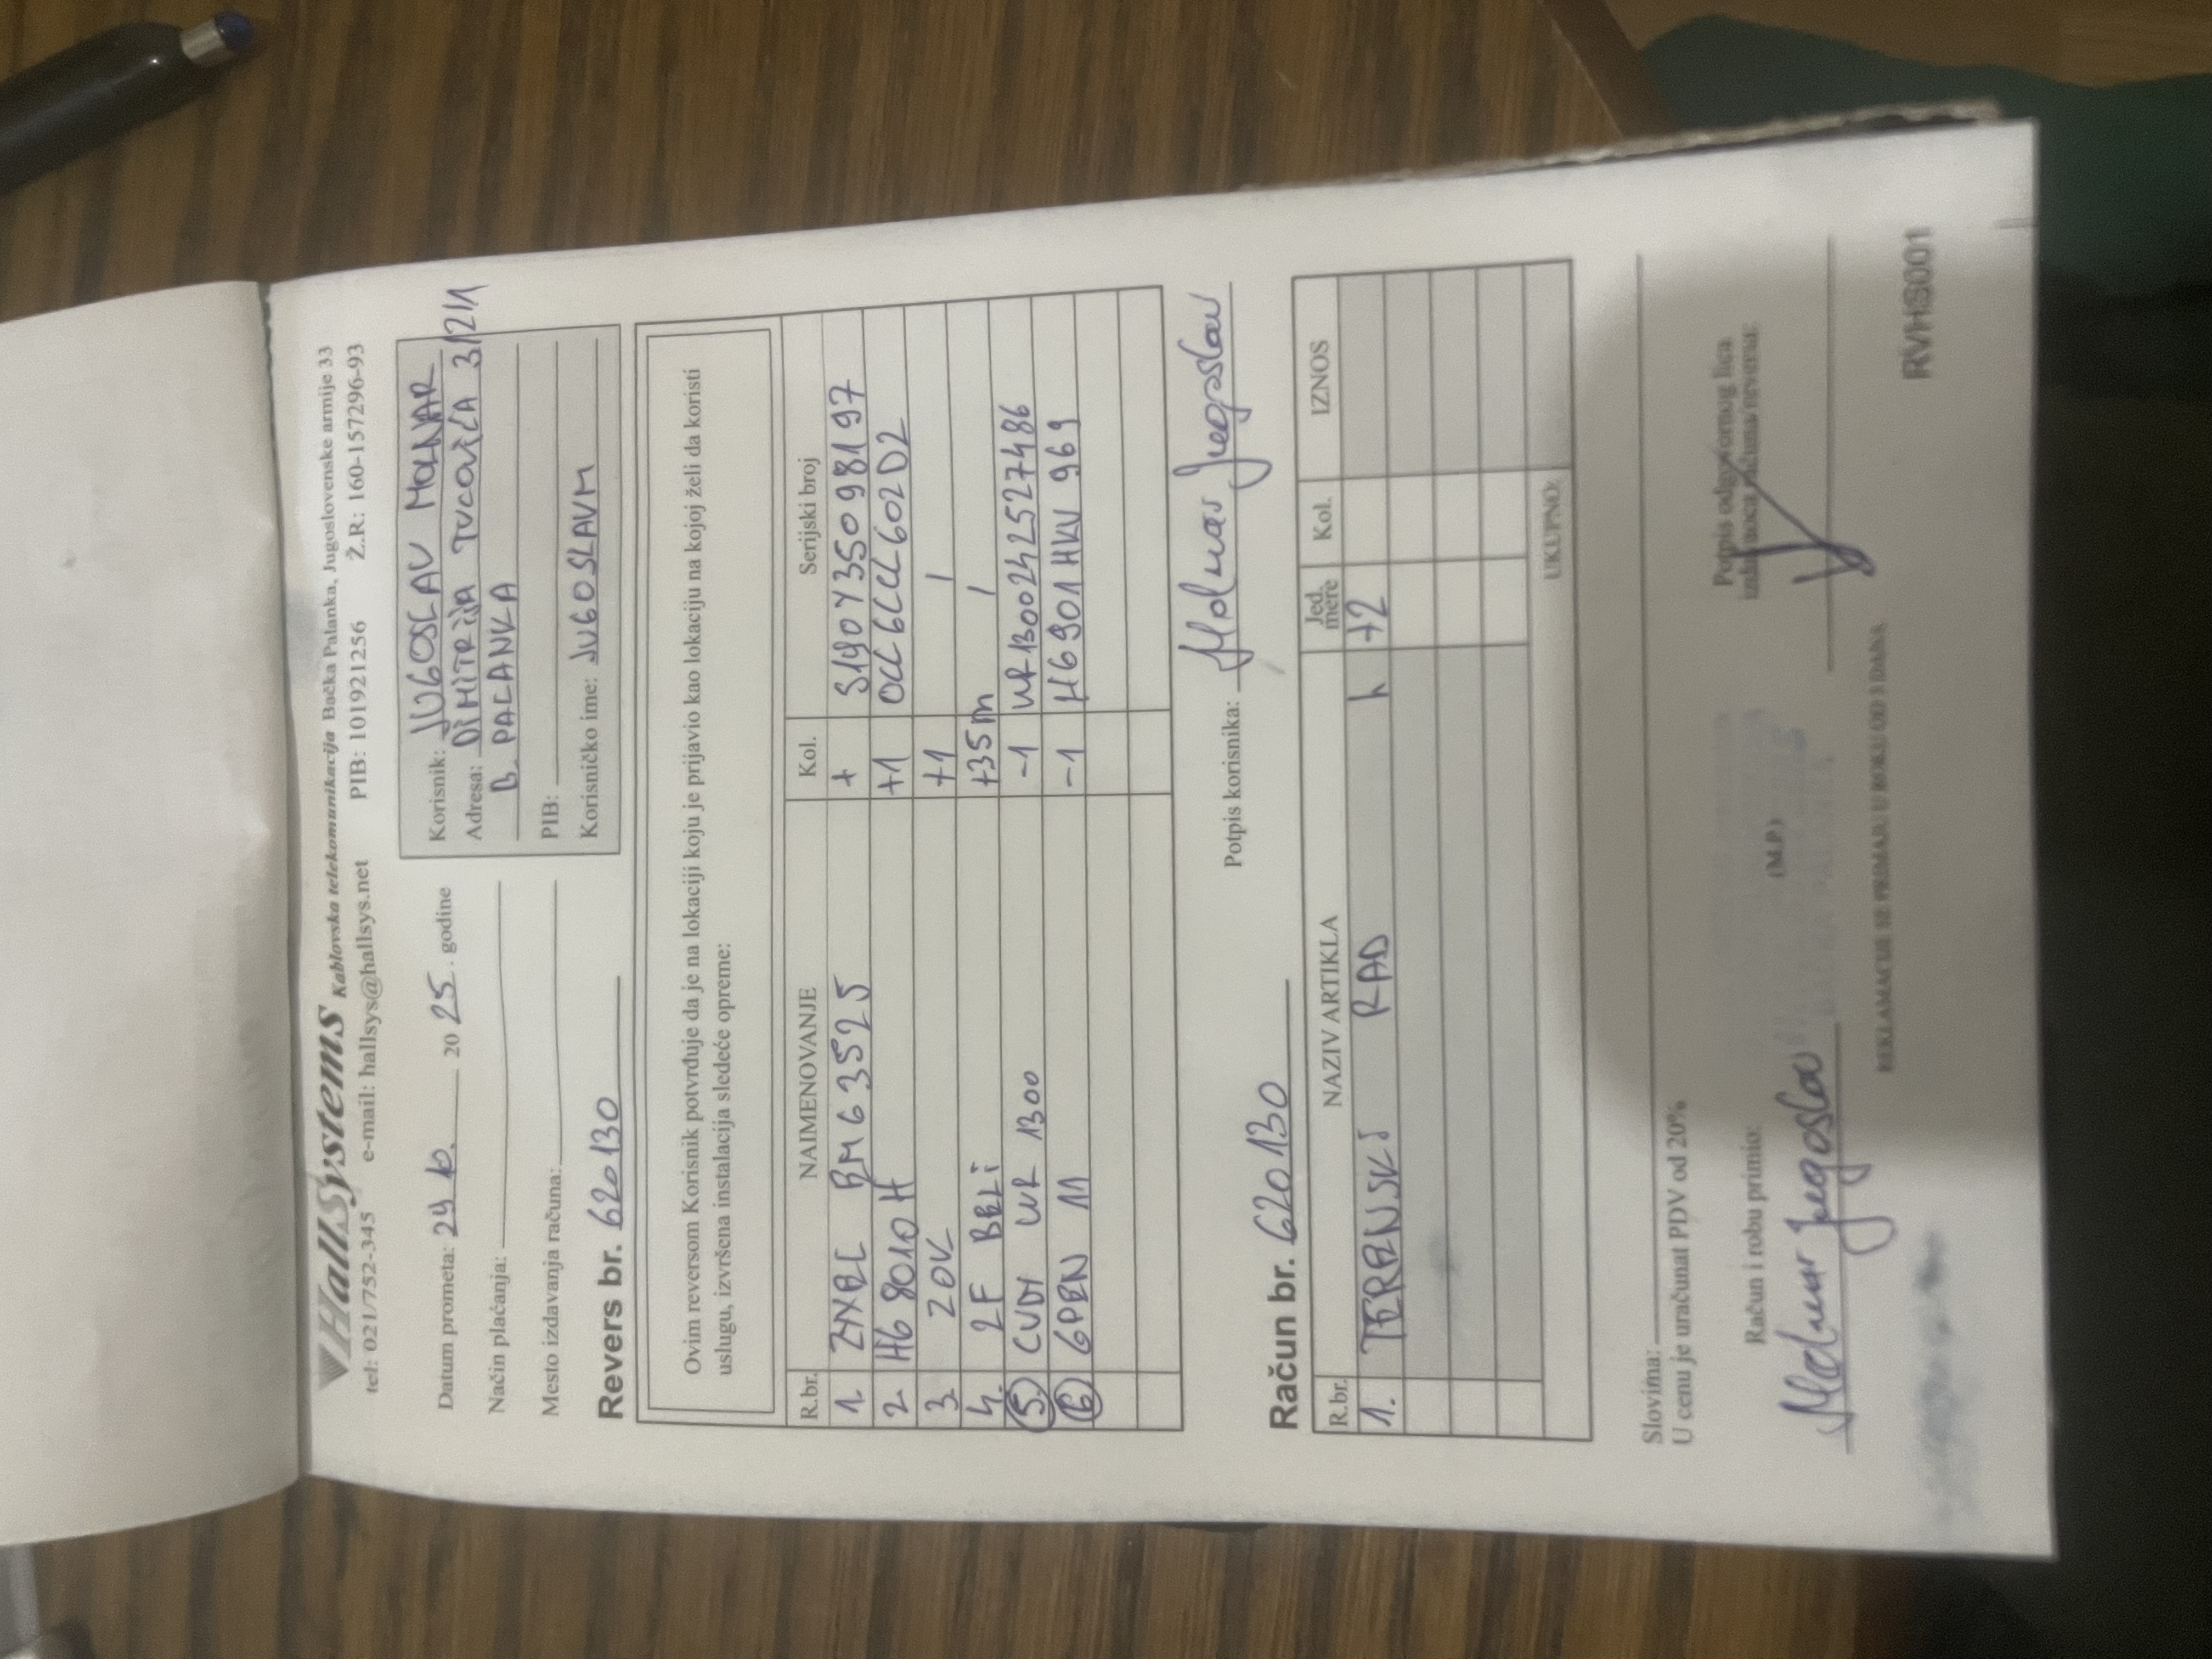 HallSystems Kablovska telekomunikacija Bačka Palanka, Jugoslovenske armije 33
tel: 021/752-345 e-mail: hallsys@hallsys.net PIB: 101921256 Ž.R: 160-157296-93
Datum prometa: 29 10. 2025. godine
Način plaćanja:
Mesto izdavanja računa:
Korisnik: JUGOSLAV MOLNAR
Adresa: DIMITRIJA TUCOVIĆA 3/21
B. PALANKA
PIB:
Korisničko ime: JUGOSLAVM
Revers br. 620130
Ovim reversom Korisnik potvrđuje da je na lokaciji koju je prijavio kao lokaciju na kojoj želi da koristi
uslugu, izvršena instalacija sledeće opreme:
R.br. NAIMENOVANJE Kol. Serijski broj
1. ZYXEL PM63525 + S190Y35098197
2. H68010H +1 OCC6CCC602D2
3. ZOK +1 /
4. 2F BELI +35m /
5. CUDY WR 1300 -1 WR1300242527486
6. GPEN 11 -1 H6901HKV969
Potpis korisnika: Molnar Jugoslav
Račun br. 620130
R.br. NAZIV ARTIKLA Jed. mere Kol. IZNOS
1. TERENSKI RAD h +2
UKUPNO:
Slovima:
U cenu je uračunat PDV od 20%
Račun i robu primio:
(M.P.)
Potpis odgovornog lica
izdavaoca računa/reversa:
Molnar Jugoslav
REKLAMACIJE SE PRIMAJU U ROKU OD 3 DANA
RVHS001